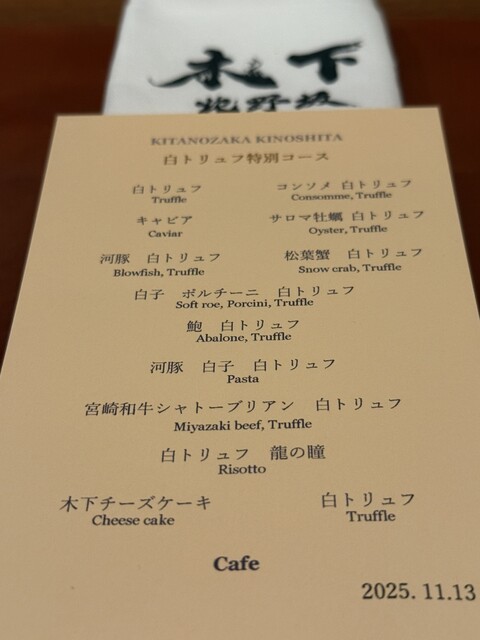 木下
北野坂
KITANOZAKA KINOSHITA
白トリュフ特別コース
白トリュフ コンソメ 白トリュフ
Truffle Consomme, Truffle
キャビア サロマ牡蠣 白トリュフ
Caviar Oyster, Truffle
河豚 白トリュフ 松葉蟹 白トリュフ
Blowfish, Truffle Snow crab, Truffle
白子 ポルチーニ 白トリュフ
Soft roe, Porcini, Truffle
鮑 白トリュフ
Abalone, Truffle
河豚 白子 白トリュフ
Pasta
宮崎和牛シャトーブリアン 白トリュフ
Miyazaki beef, Truffle
白トリュフ 龍の瞳
Risotto
木下チーズケーキ 白トリュフ
Cheese cake Truffle
Cafe
2025. 11.13